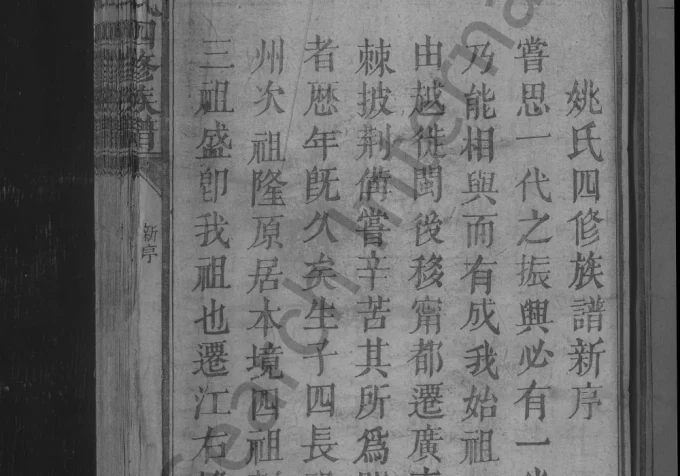 姚氏四修族譜新序
嘗思一代之振興必有一
乃能相與而有成我始祖
由越徙閩後移甯都遷廣
棘披荆僃嘗辛苦其所爲
者歷年旣久矣生子四長
州次祖隆原居本境四祖
三祖盛卽我祖也遷江右
氏四修族譜
新序